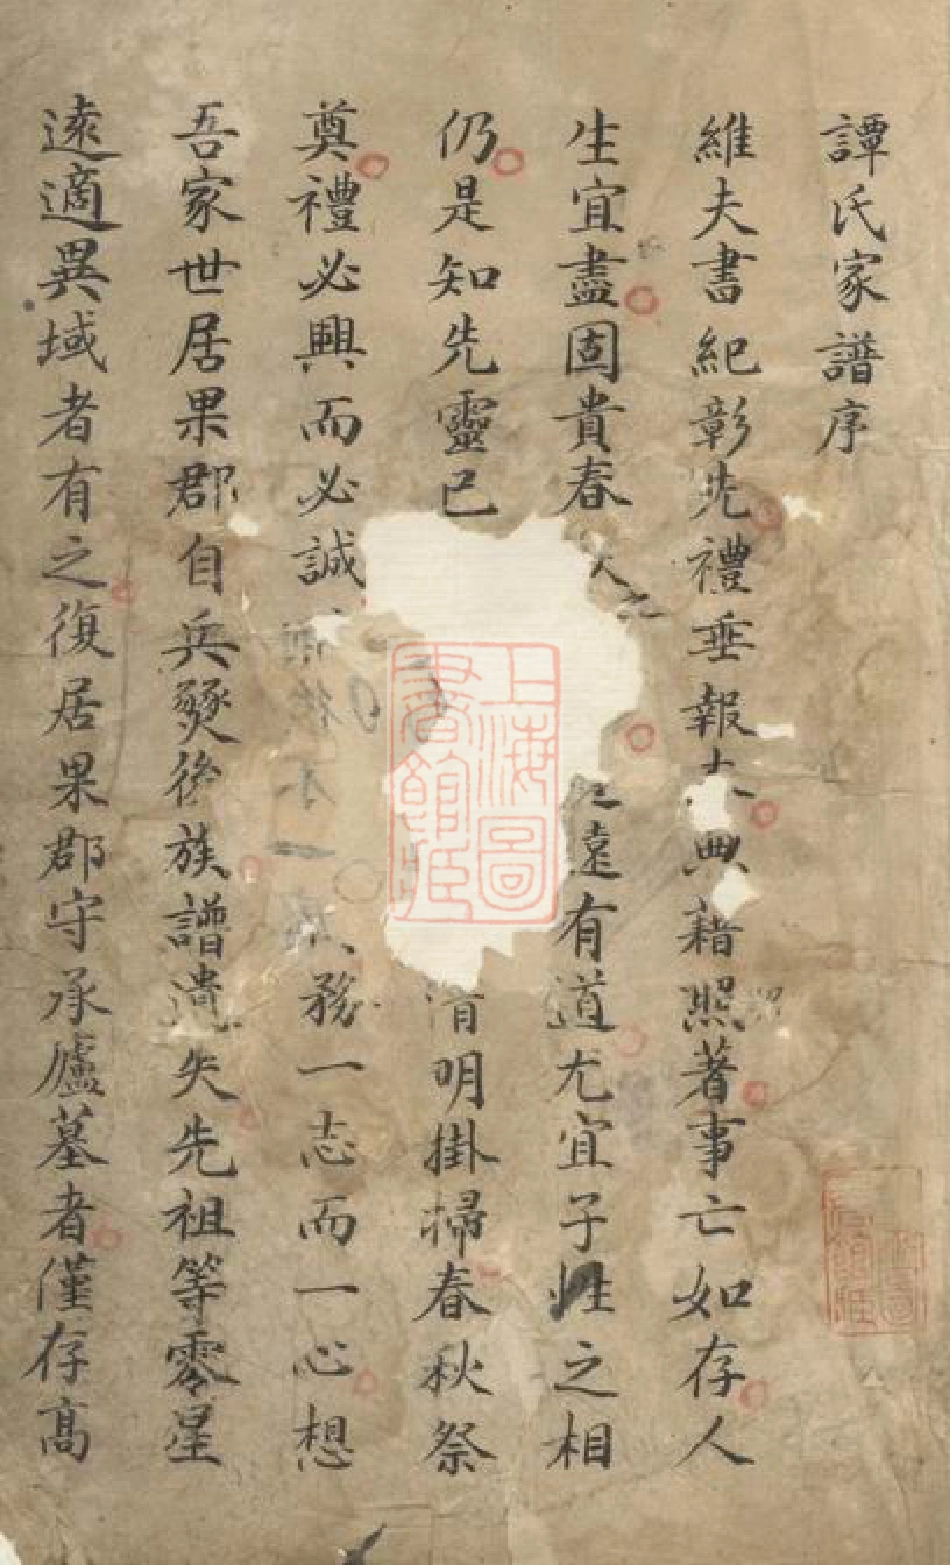 譚氏家譜序
維夫書紀彰先禮垂報典藉照著事亡如存人
生宜盡固貴春遠有道尤宜子姓之相
仍是知先靈已明掛掃春秋祭
奠禮必興而必誠務一志而一心想
吾家世居果郡自兵燹後族譜遺失先祖等零星
遠適異域者有之復居果郡守承廬墓者僅存高
上海圖書館藏